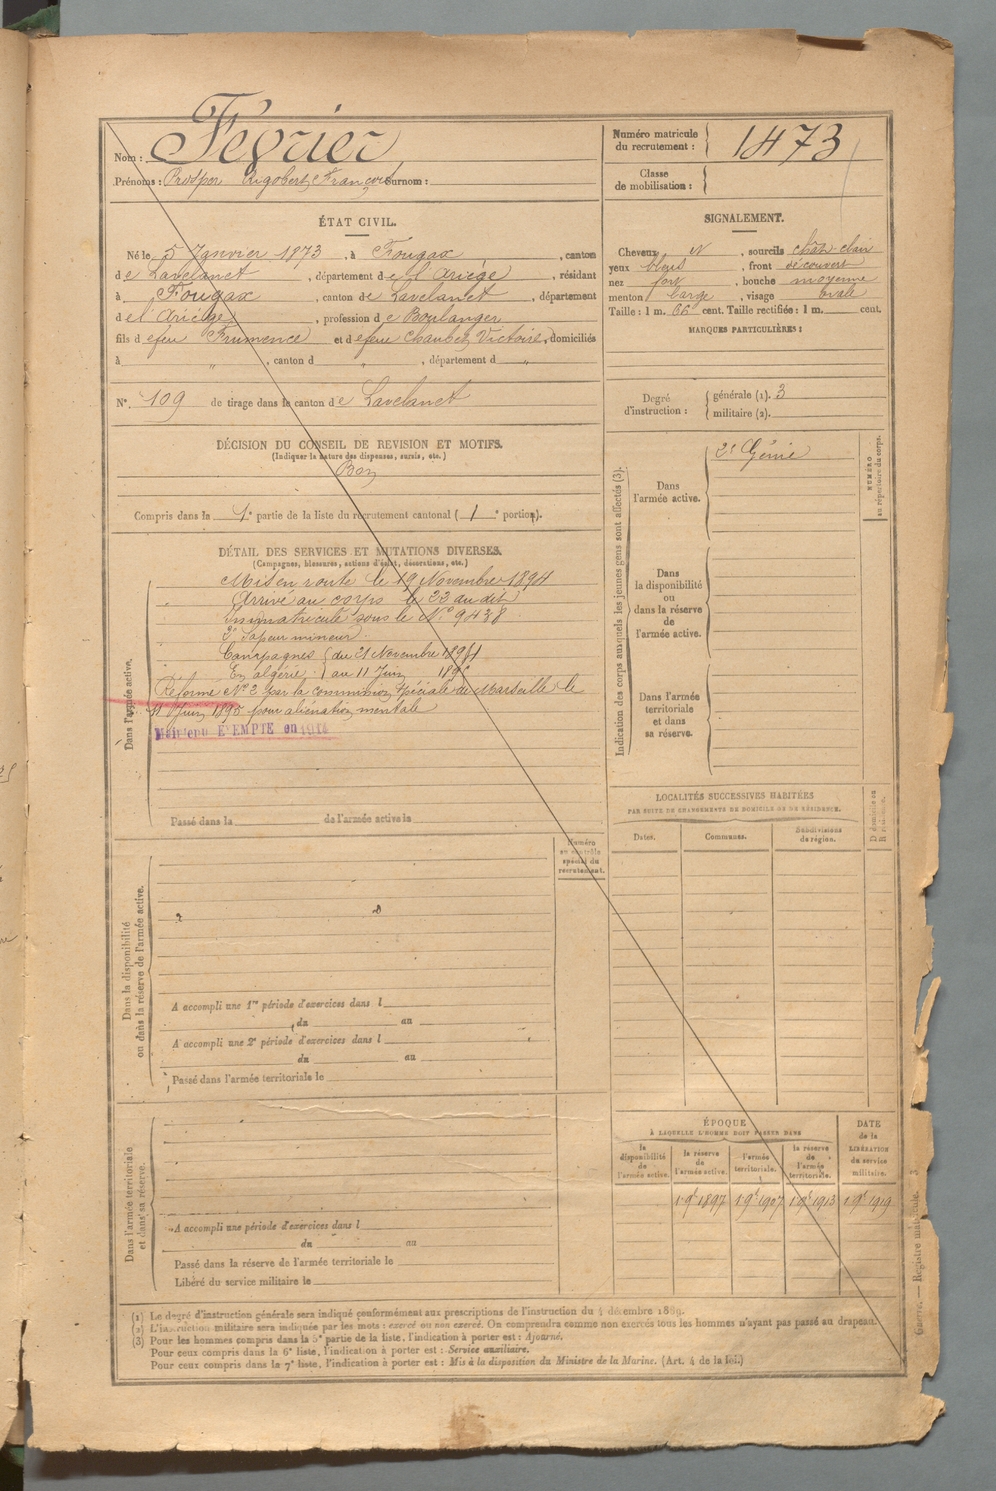 Nom : Février
Prénoms : Prosper Rigobert François Surnom :
Numéro matricule du recrutement : 1473
Classe de mobilisation :
ÉTAT CIVIL.
Né le 5 Janvier 1873, à Fougax, canton
de Lavelanet, département de l'Ariège, résidant
à Fougax, canton de Lavelanet, département
de l'Ariège, profession de Boulanger
fils de feu Frumence et de feue Chaubet Victoire, domiciliés
à " , canton d " , département d "
N° 109 de tirage dans le canton de Lavelanet
SIGNALEMENT.
Cheveux N , sourcils chât-clair
yeux bleus , front découvert
nez fort , bouche moyenne
menton large , visage ovale
Taille : 1 m. 66 cent. Taille rectifiée : 1 m. cent.
MARQUES PARTICULIÈRES :
Degré d'instruction : générale (1). 3
militaire (2).
DÉCISION DU CONSEIL DE REVISION ET MOTIFS.
(Indiquer la nature des dispenses, sursis, etc.)
Bon
Compris dans la 1e partie de la liste du recrutement cantonal ( 1e portion).
DÉTAIL DES SERVICES ET MUTATIONS DIVERSES.
(Campagnes, blessures, actions d'éclat, décorations, etc.)
Dans l'armée active.
Mis en route le 19 Novembre 1894
Arrivé au corps le 23 au dit
Immatriculé sous le N° 9438
2e Sapeur mineur
Campagnes { du 21 Novembre 1894
En algérie { au 11 Juin 1895
Réformé N° 2 par la commission spéciale de Marseille le
11 Juin 1895 pour aliénation mentale
Maintenu EXEMPTÉ en 1914
Passé dans la de l'armée active le
Indication des corps auxquels les jeunes gens sont affectés (3).
Dans l'armée active.
2e Génie
NUMÉRO au répertoire du corps.
Dans la disponibilité ou dans la réserve de l'armée active.
Dans l'armée territoriale et dans sa réserve.
LOCALITÉS SUCCESSIVES HABITÉES
PAR SUITE DE CHANGEMENTS DE DOMICILE OU DE RÉSIDENCE.
Dates. Communes. Subdivisions de région. D domicile ou R résidence.
Numéro au contrôle spécial du recrutement.
Dans la disponibilité ou dans la réserve de l'armée active.
A accompli une 1re période d'exercices dans l
du au
A accompli une 2e période d'exercices dans l
du au
Passé dans l'armée territoriale le
Dans l'armée territoriale et dans sa réserve.
A accompli une période d'exercices dans l
du au
Passé dans la réserve de l'armée territoriale le
Libéré du service militaire le
ÉPOQUE
À LAQUELLE L'HOMME DOIT PASSER DANS
la disponibilité de l'armée active. la réserve de l'armée active. l'armée territoriale. la réserve de l'armée territoriale. DATE de la LIBÉRATION du service militaire.
1 9e 1897 1 9e 1907 1 9e 1913 1 9e 1919
(1) Le degré d'instruction générale sera indiqué conformément aux prescriptions de l'instruction du 4 décembre 1889.
(2) L'instruction militaire sera indiquée par les mots : exercé ou non exercé. On comprendra comme non exercés tous les hommes n'ayant pas passé au drapeau.
(3) Pour les hommes compris dans la 5e partie de la liste, l'indication à porter est : Ajourné.
Pour ceux compris dans la 6e liste, l'indication à porter est : Service auxiliaire.
Pour ceux compris dans la 7e liste, l'indication à porter est : Mis à la disposition du Ministre de la Marine. (Art. 4 de la loi.)
Guerre. — Registre matricule. 3